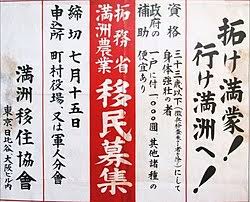 拓け満蒙！
行け満洲へ！
資格
三十三歳以下にして
身体強壮の者
政府の補助
一戸に付一〇〇〇圓 其他諸種の
便宜あり
拓務省
満洲農業
移民募集
締切 七月十五日
申込所 町村役場、又は軍人分會
満洲移住協會
東京・日比谷・大阪ビル内